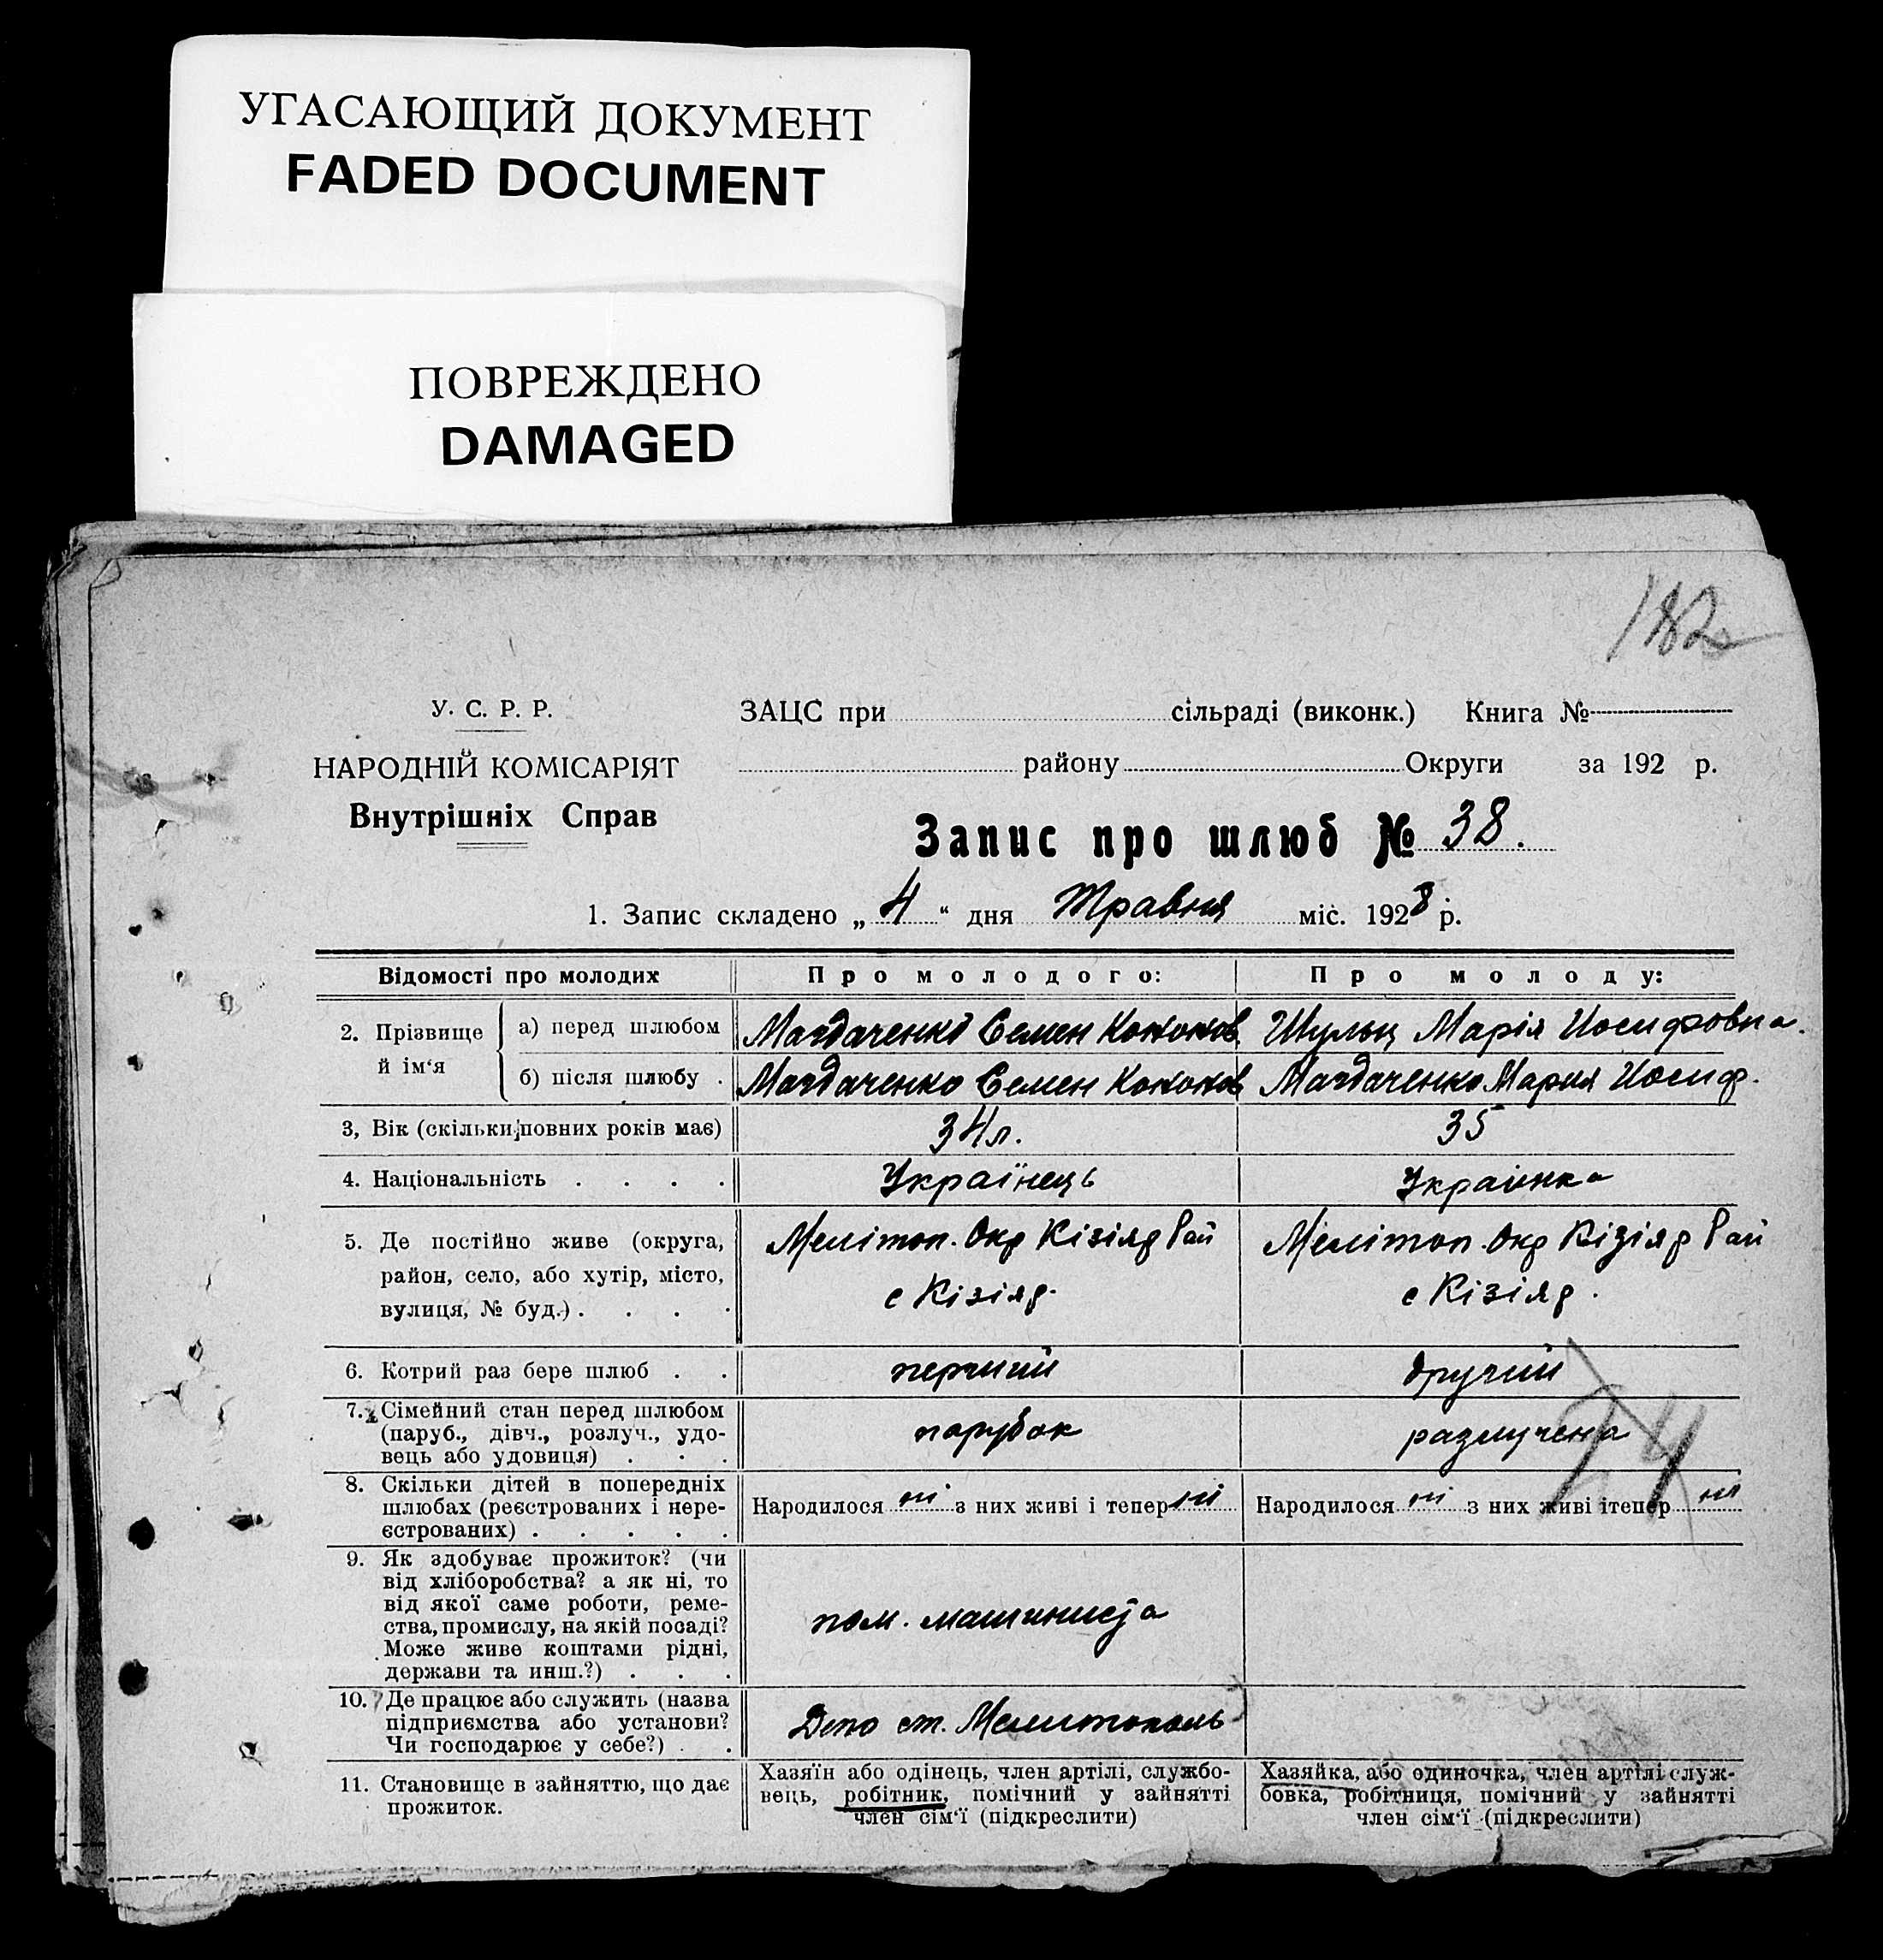 УГАСАЮЩИЙ ДОКУМЕНТ
FADED DOCUMENT
ПОВРЕЖДЕНО
DAMAGED
182
У. С. Р. Р.
НАРОДНІЙ КОМІСАРІЯТ
Внутрішніх Справ
ЗАЦС при сільраді (виконк.) Книга №
району Округи за 192 р.
Запис про шлюб № 38.
1. Запис складено „ 4 “ дня Травня міс. 1928 р.
Відомості про молодих
Про молодого:
Про молоду:
2. Прізвище й ім‘я
а) перед шлюбом
Магдаченко Семен
Шульц Марія Иосифовна.
б) після шлюбу .
Магдаченко Семен
Магдаченко Мария Иосиф.
3, Вік (скільки повних років має)
34 л.
35
4. Національність . . . .
Українець
Украінка
5. Де постійно живе (округа,
район, село, або хутір, місто,
вулиця, № буд.) . . . .
Мелітоп. Окр Кізіяр Рай
с Кізіяр.
Мелітоп. Окр Кізіяр Рай
с Кізіяр.
6. Котрий раз бере шлюб . .
перший
другий
7. Сімейний стан перед шлюбом
(паруб., дівч., розлуч., удо-
вець або удовиця) . . .
парубок
разлучена
74
8. Скільки дітей в попередніх
шлюбах (реєстрованих і нере-
єстрованих) . . . . .
Народилося ні з них живі і тепер ні
Народилося ні з них живі ітепер ні
9. Як здобуває прожиток? (чи
від хліборобства? а як ні, то
від якої саме роботи, реме-
ства, промислу, на якій посаді?
Може живе коштами рідні,
держави та инш.?) . . .
пом. машиниста
10. Де працює або служить (назва
підприємства або установи?
Чи господарює у себе?) . .
Депо ст. Мелитополь
11. Становище в зайняттю, що дає
прожиток.
Хазяїн або одінець, член артілі, службо-
вець, робітник, помічний у зайнятті
член сім‘ї (підкреслити)
Хазяйка, або одиночка, член артілі служ-
бовка, робітниця, помічний у зайнятті
член сім‘ї (підкреслити)